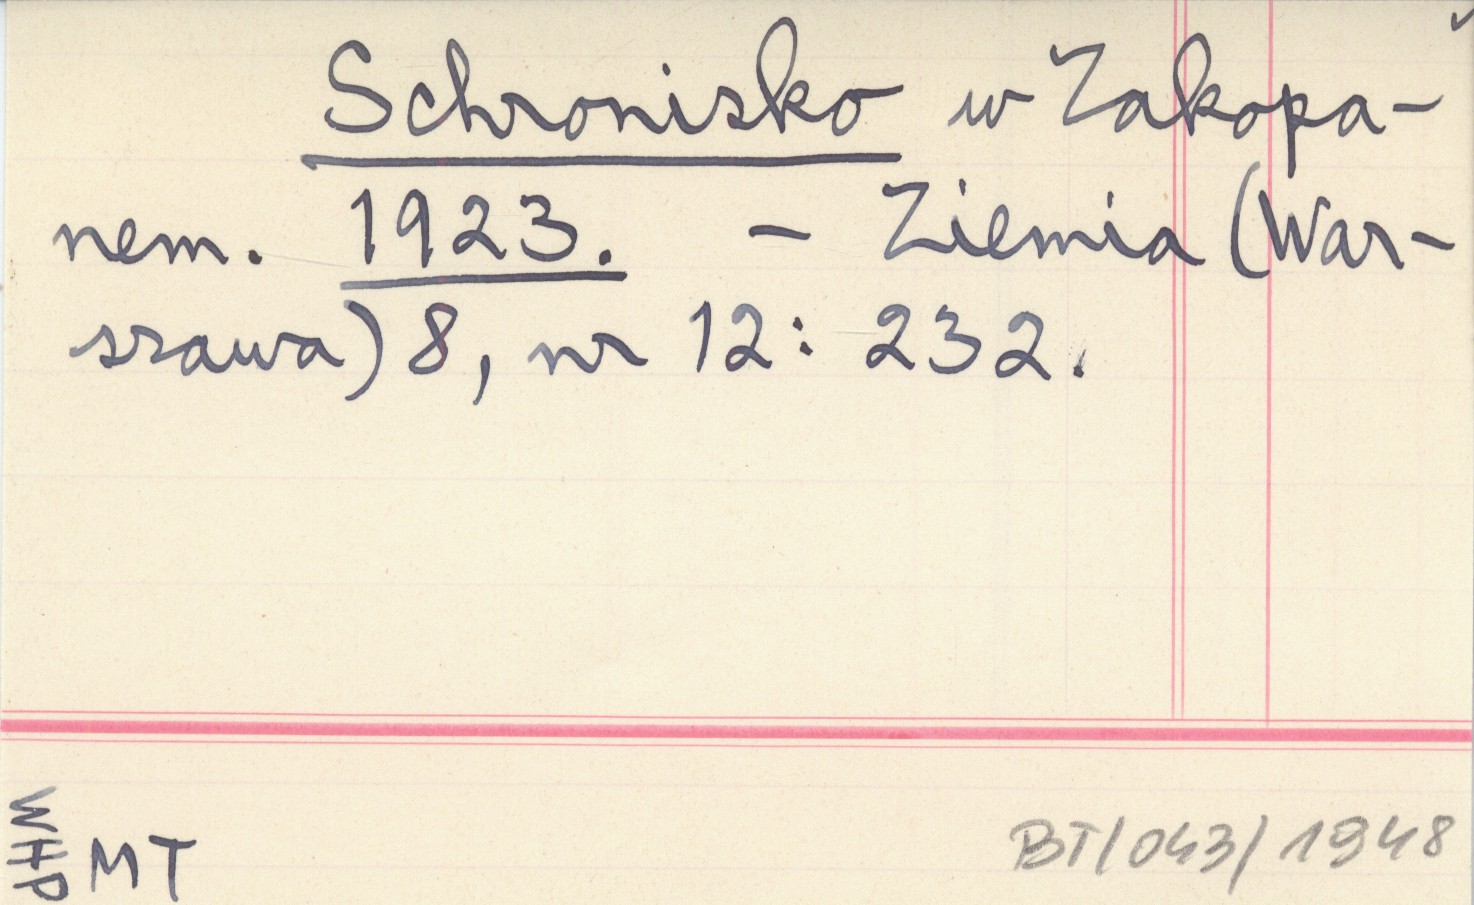 Schronisko w Zakopa-
nem. 1923. - Ziemia (War-
szawa) 8, nr 12: 232.
WHP
MT
BT/043/1948